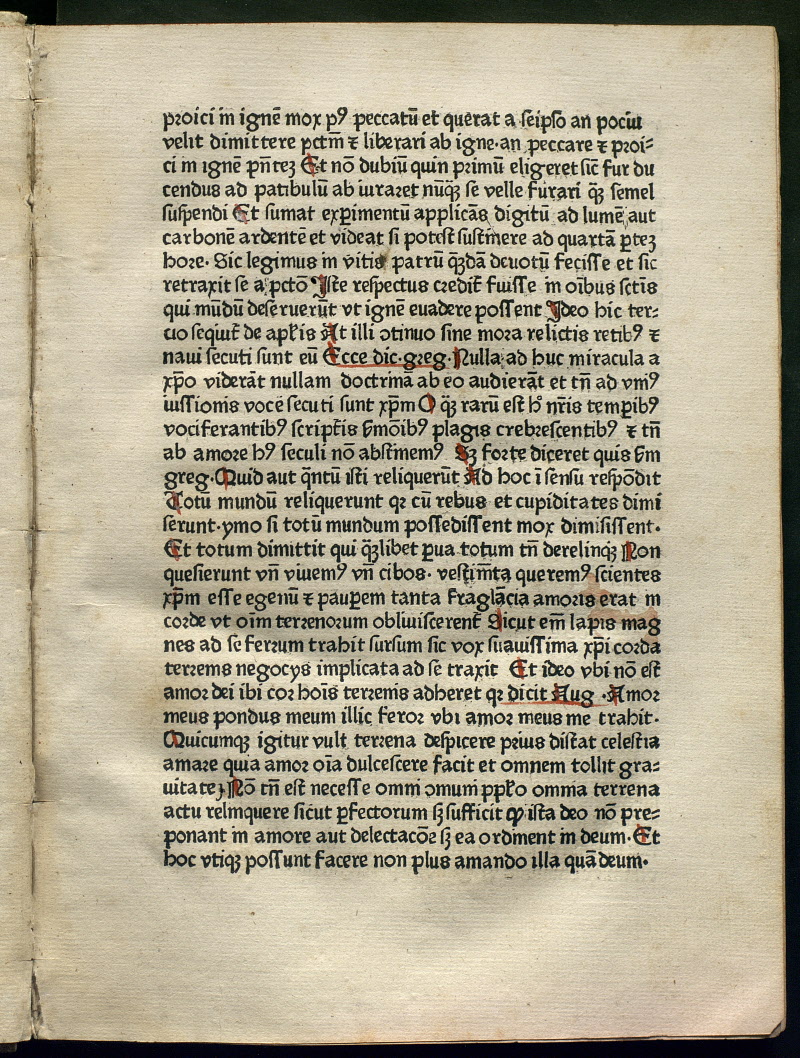 proici in ignē mox pꝰ peccatū et querat a seipso an pociꝰ
velit dimittere pctm̄ ⁊ liberari ab igne·an peccare ⁊ proi⸗
ci in ignē pn̄teꝫ Et nō dubiū quin primū eligeret sic̄ fur du
cendus ad patibulū ab iuraret nūqꝫ se velle furari qꝫ semel
suspendi Et sumat exꝑimentū applicās digitū ad lumē aut
carbonē ardentē et videat si potest sustinere ad quartā ꝑteꝫ
hore· Sic legimus in vitis patrū qꝫdā deuotū fecisse et sic
retraxit se a pctō Iste respectus credit̄ fuisse in oībus sctīs
qui mūdū deseruerūt vt ignē euadere possent Ideo hic ter⸗
cio seqiut̄ de apl̄is At illi ꝯtinuo sine mora relictis retibꝰ ⁊
naui secuti sunt eū Ecce dic·greg· Nulla ad huc miracula a
xp̄o viderāt nullam doctrinā ab eo audierāt et tn̄ ad vniꝰ
iussionis vocē secuti sunt xp̄m O qꝫ rarū est h̄ nr̄is temꝑibꝰ
vociferantibꝰ scriptīs s̄mōibꝰ plagis crebrescentibꝰ ⁊ tn̄
ab amore hꝰ seculi nō abstinemꝰ Sꝫ forte diceret quis s̄m
greg· Quid aut qn̄tū isti reliquerūt Ad hoc ī sensu respōdit
Totū mundū reliquerunt qꝛ cū rebus et cupiditates dimi
serunt·ymo si totū mundum possedissent mox dimisissent·
Et totum dimittit qui qꝫlibet ꝑua totum tn̄ derelinqꝫ Non
quesierunt vn̄ viuemꝰ vn̄ cibos· vestim̄ta queremꝰ scientes
xp̄m esse egenū ⁊ pauꝑem tanta fraglācia amoris erat in
corde vt oīm terrenorum obliuiscerent̄ Sicut em̄ lapis mag
nes ad se ferrum trahit sursum sic vox suauissima xp̄i corda
terrenis negocys implicata ad se traxit Et ideo vbi nō est
amor dei ibi cor hoīs terrenis adheret qꝛ dicit Aug · Amor
meus pondus meum illic feror vbi amor meus me trahit·
Quicumqꝫ igitur vult terrena despicere prius discat celestia
amare quia amor oīa dulcescere facit et omnem tollit gra⸗
uitateꝫ Nō tn̄ est necesse omni ꝯmuni ppl̄o omnia terrena
actu relinquere sicut ꝑfectorum sꝫ sufficit ꝙ ista deo nō pre⸗
ponant in amore aut delectacōꝫ sꝫ ea ordinent in deum· Et
hoc vtiqꝫ possunt facere non plus amando illa quā deum·